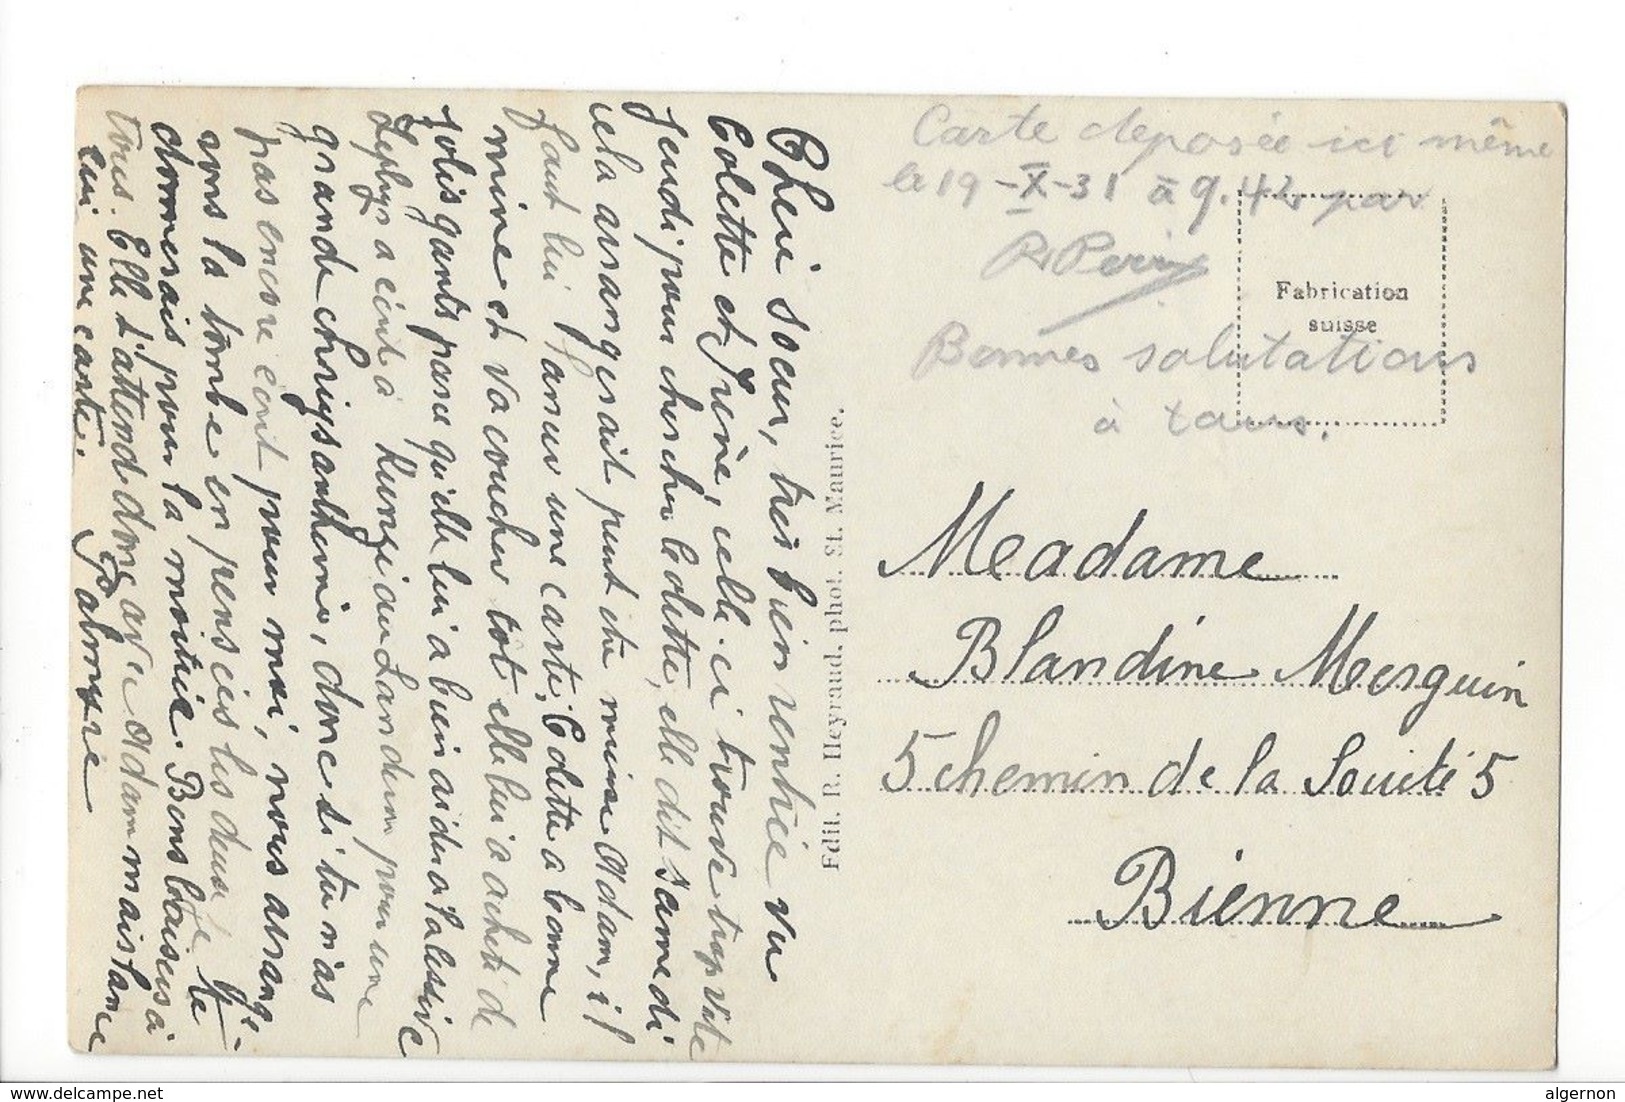 Chère soeur, très bien rentrée vu
Colette et Irène, celle-ci trouve trop vite
Jeudi pour chercher Colette, elle dit samedi
cela arrangerait peut être mieux Adam, il
faut lui lancer une carte, Colette a bonne
mine et va coucher tôt elle lui a acheté de
jolis gants parce qu'elle lui a bien aidé à la lessive
a écrit à Kunzi au Landeron pour une
grande chrysanthème, donc si tu n'as
pas encore écrit pour moi, nous arrange-
rons la tombe en pensées les deux je te
donnerais pour la moitié. Bons baisers à
tous. Elle t'attend donc avec Adam mais lance
lui une carte.
Edit. R. Heyraud, phot. St. Maurice.
Carte deposée ici même
le 19-X-31 à 9.42 par
R Perrin
Fabrication
suisse
Bonnes salutations
à tous.
Madame
Blandine Mesguin
5 chemin de la Société 5
Bienne
algernon